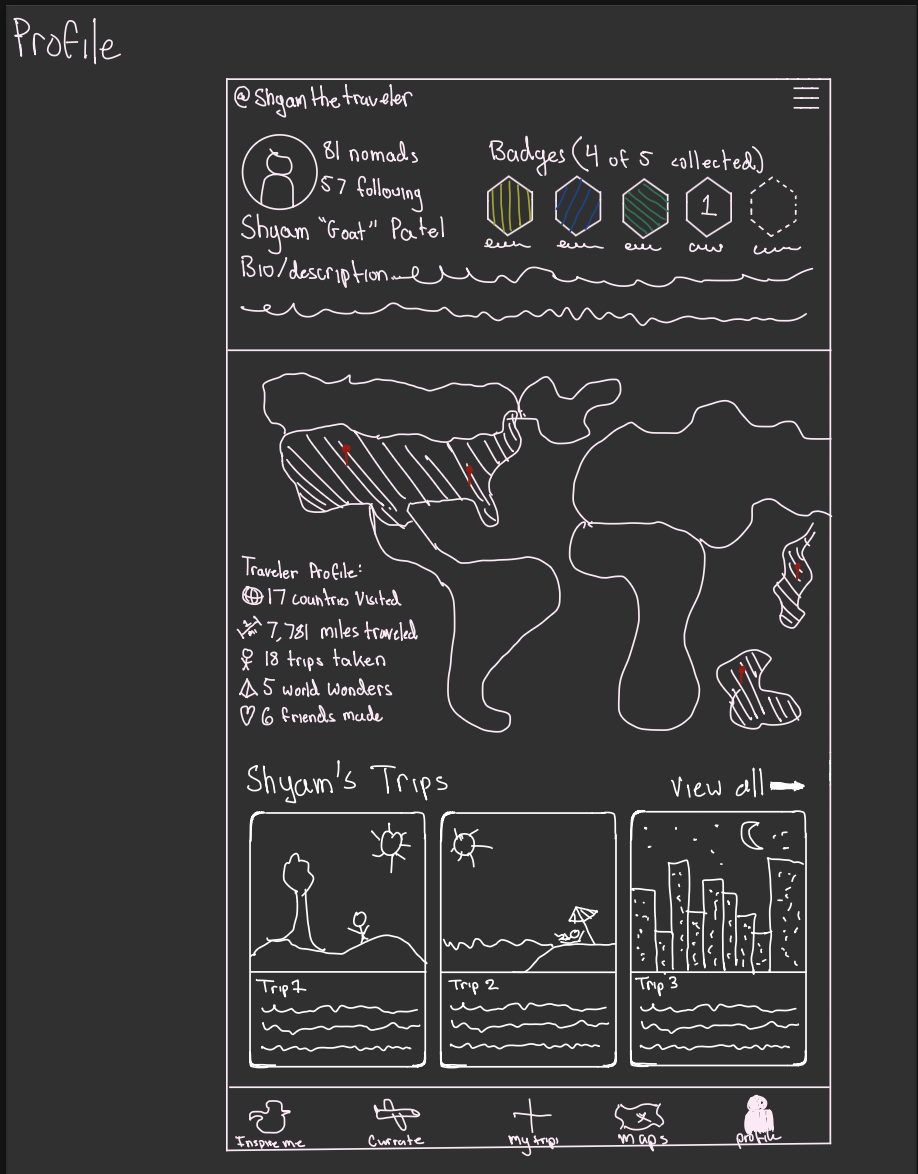 Profile
@Shyamthetraveler
81 nomads
57 following
Shyam "Goat" Patel
Bio/description
Badges (4 of 5 collected)
1
Traveler Profile:
17 countries visited
7,781 miles traveled
18 trips taken
5 world wonders
6 friends made
Shyam's Trips
View all
Trip 1
Trip 2
Trip 3
Inspire me
Currate
My trips
maps
profile